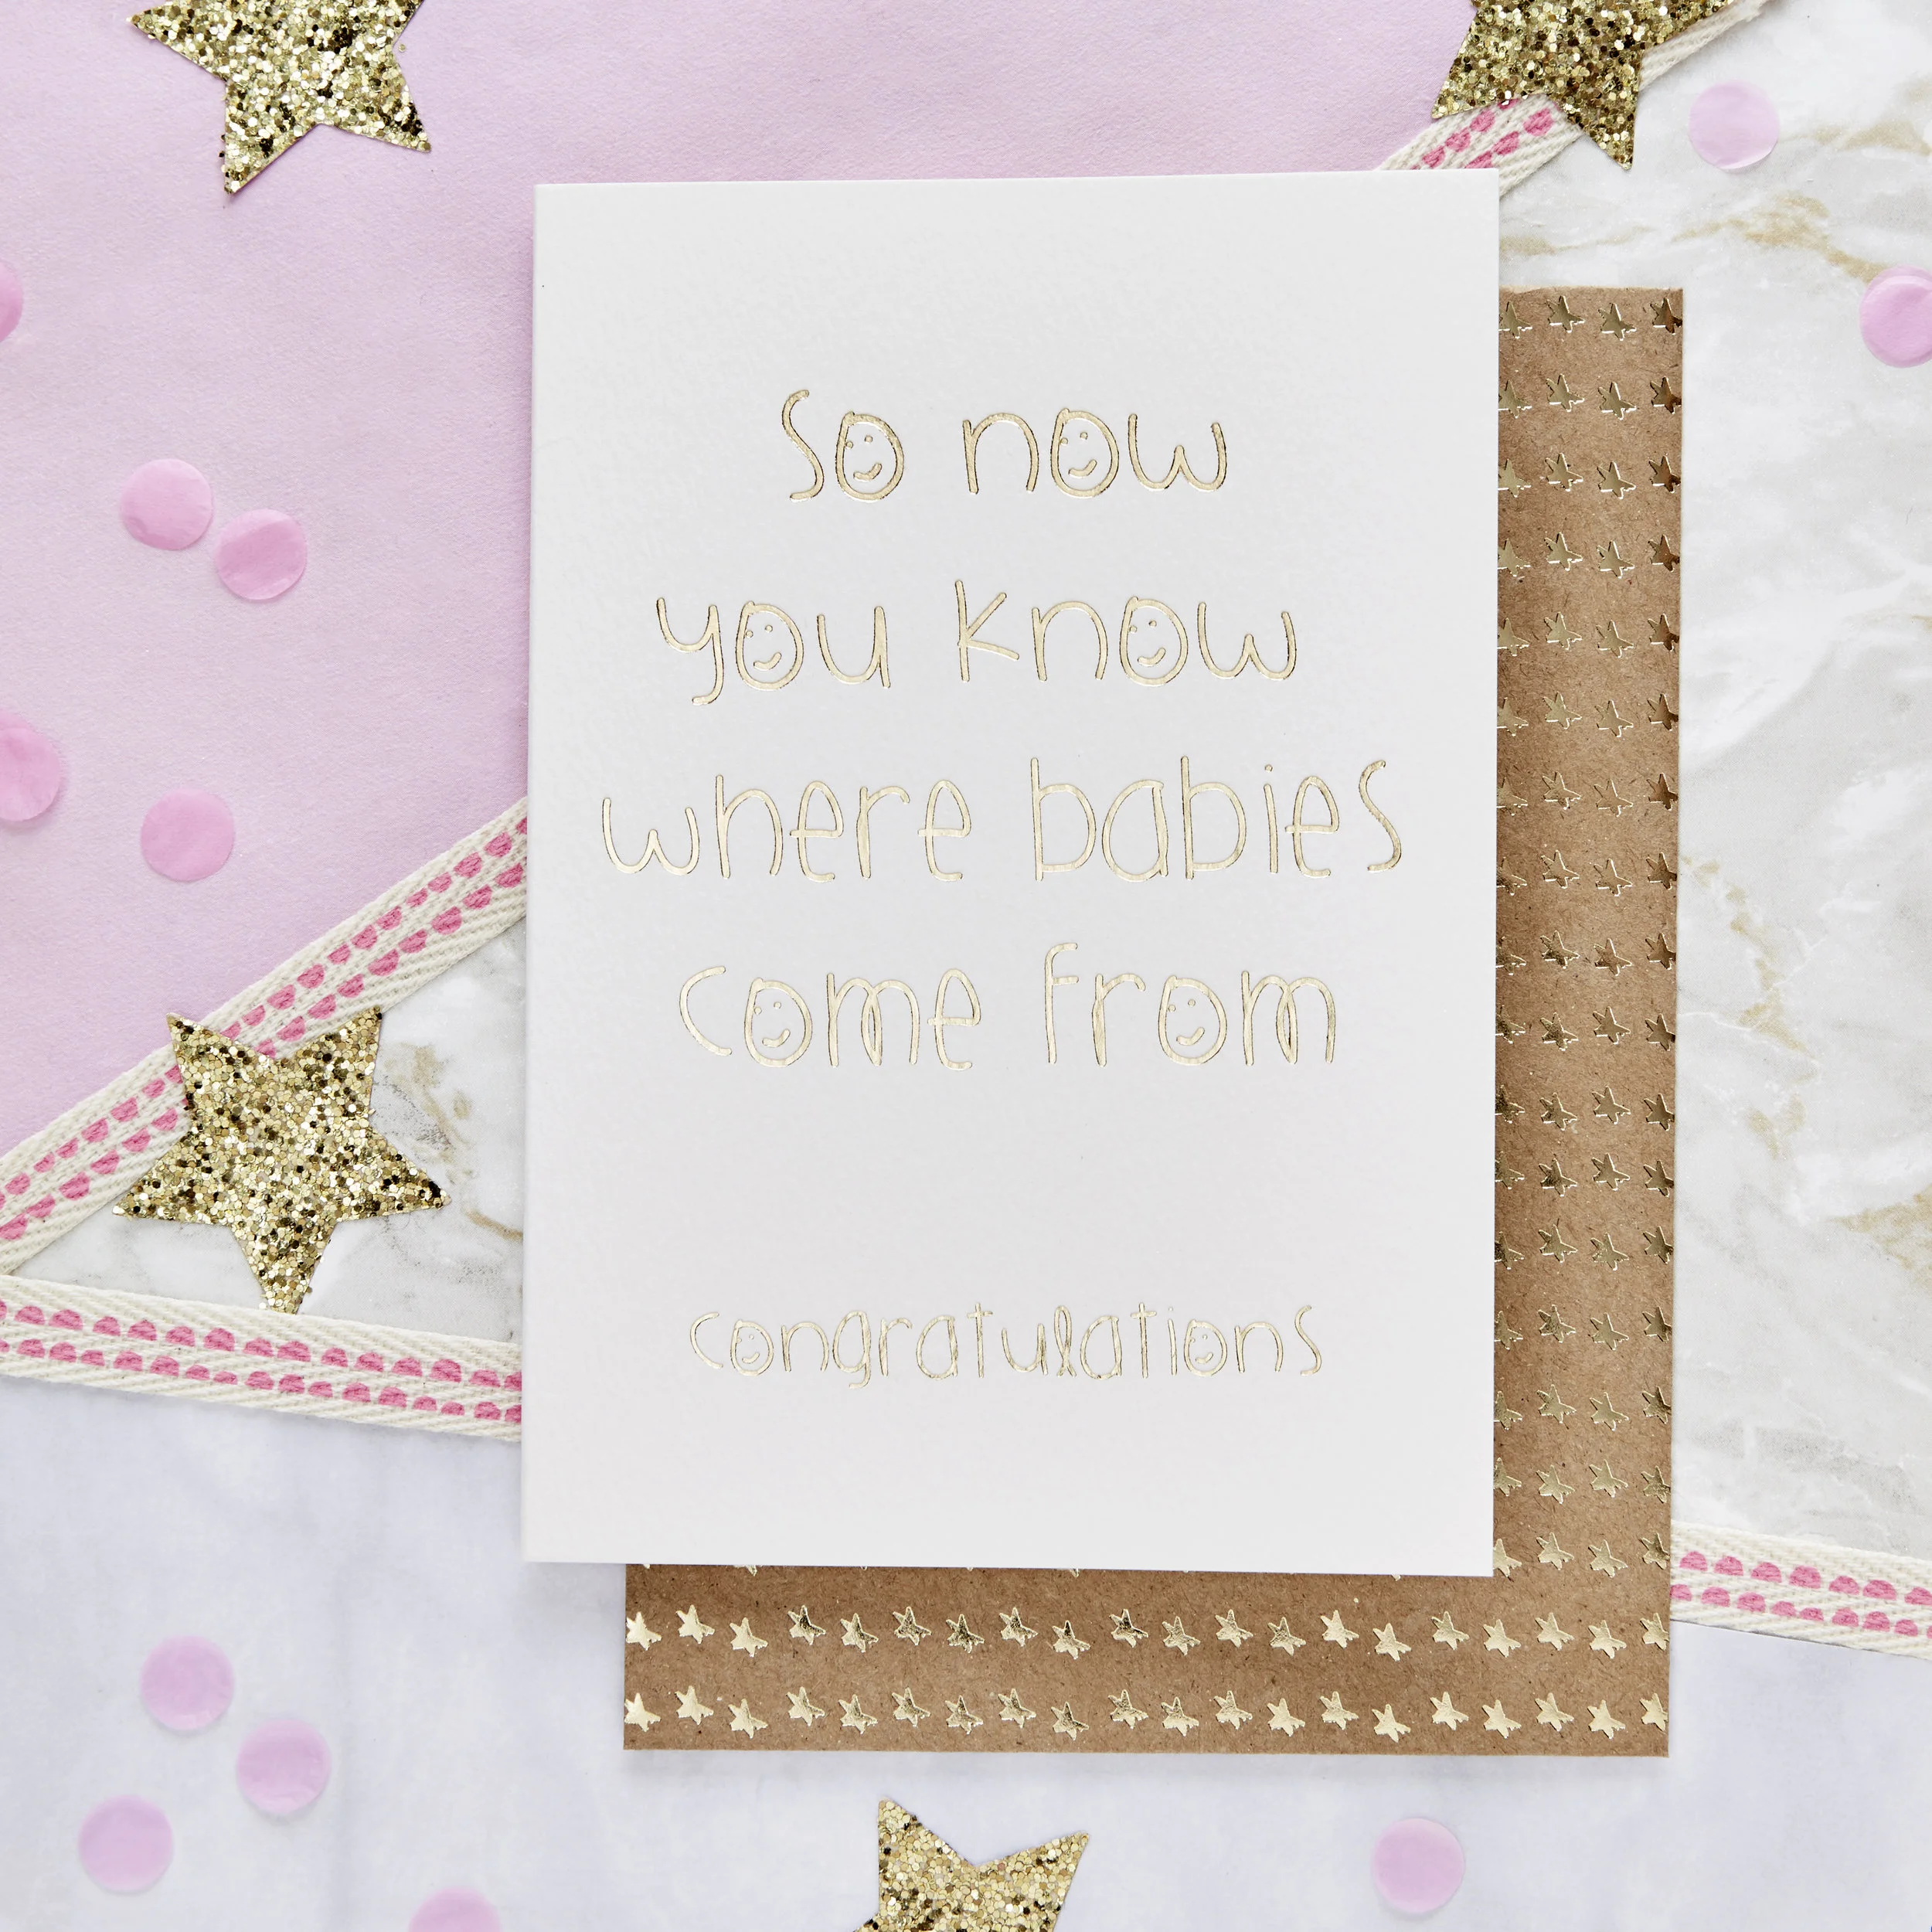 so now
you know
where babies
come from
congratulations